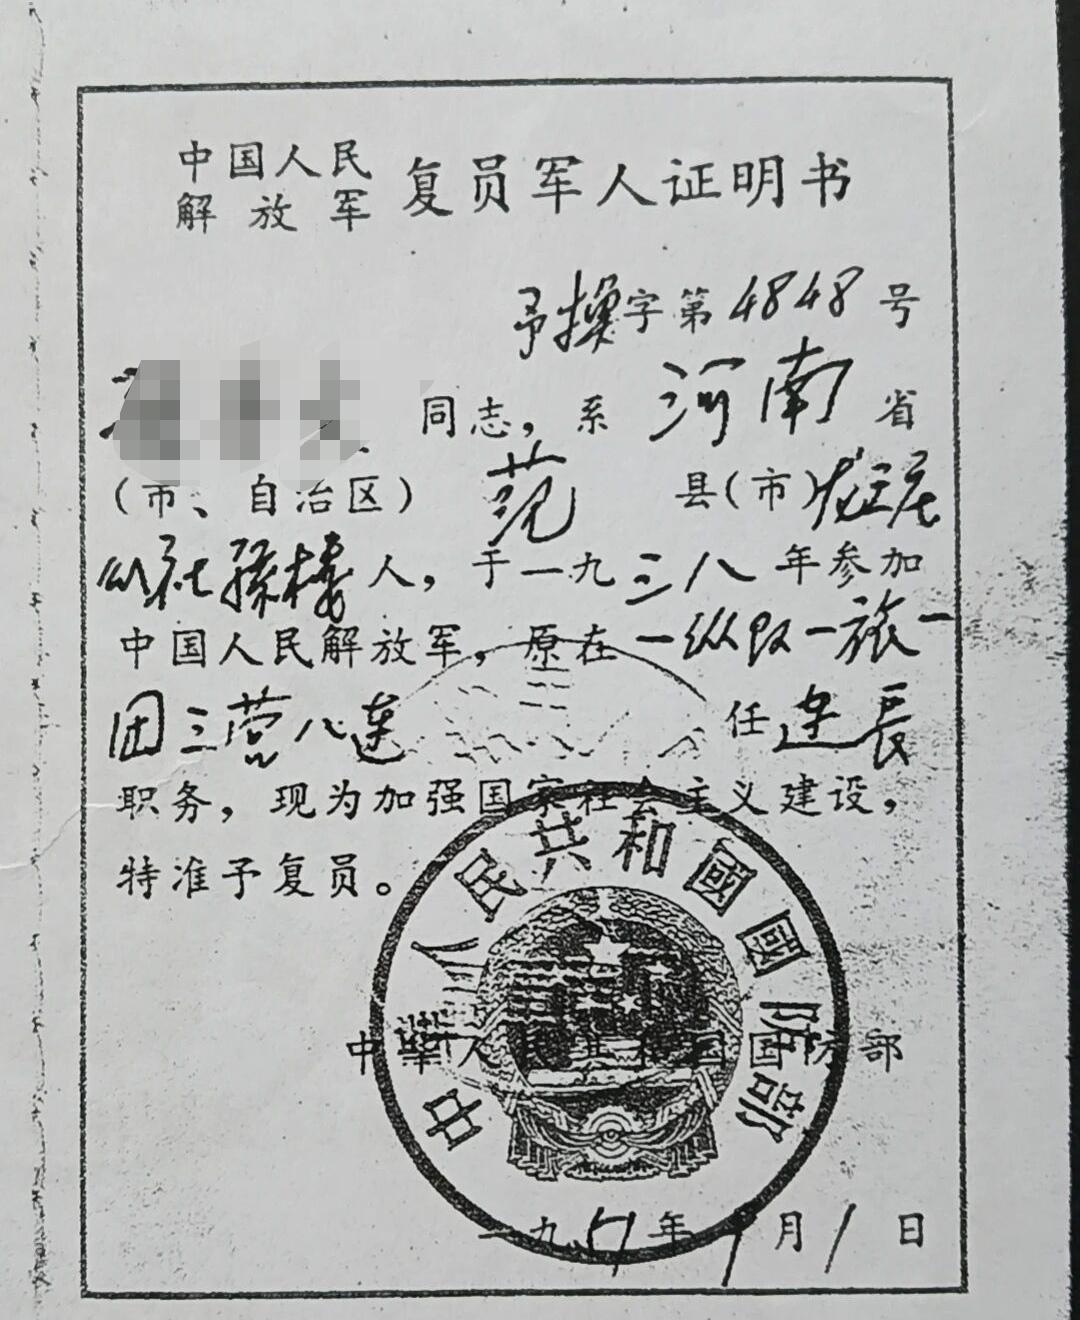 中国人民
解放军 复员军人证明书
予换字第4848号
同志，系河南省
（市、自治区）范县（市）龙王庄
公社孙楼人，于一九三八年参加
中国人民解放军，原在一纵队一旅一
团三营八连任连長
职务，现为加强国家社会主义建设，
特准予复员。
中华人民共和国国防部
中華人民共和國國防部
一九 年 月1日